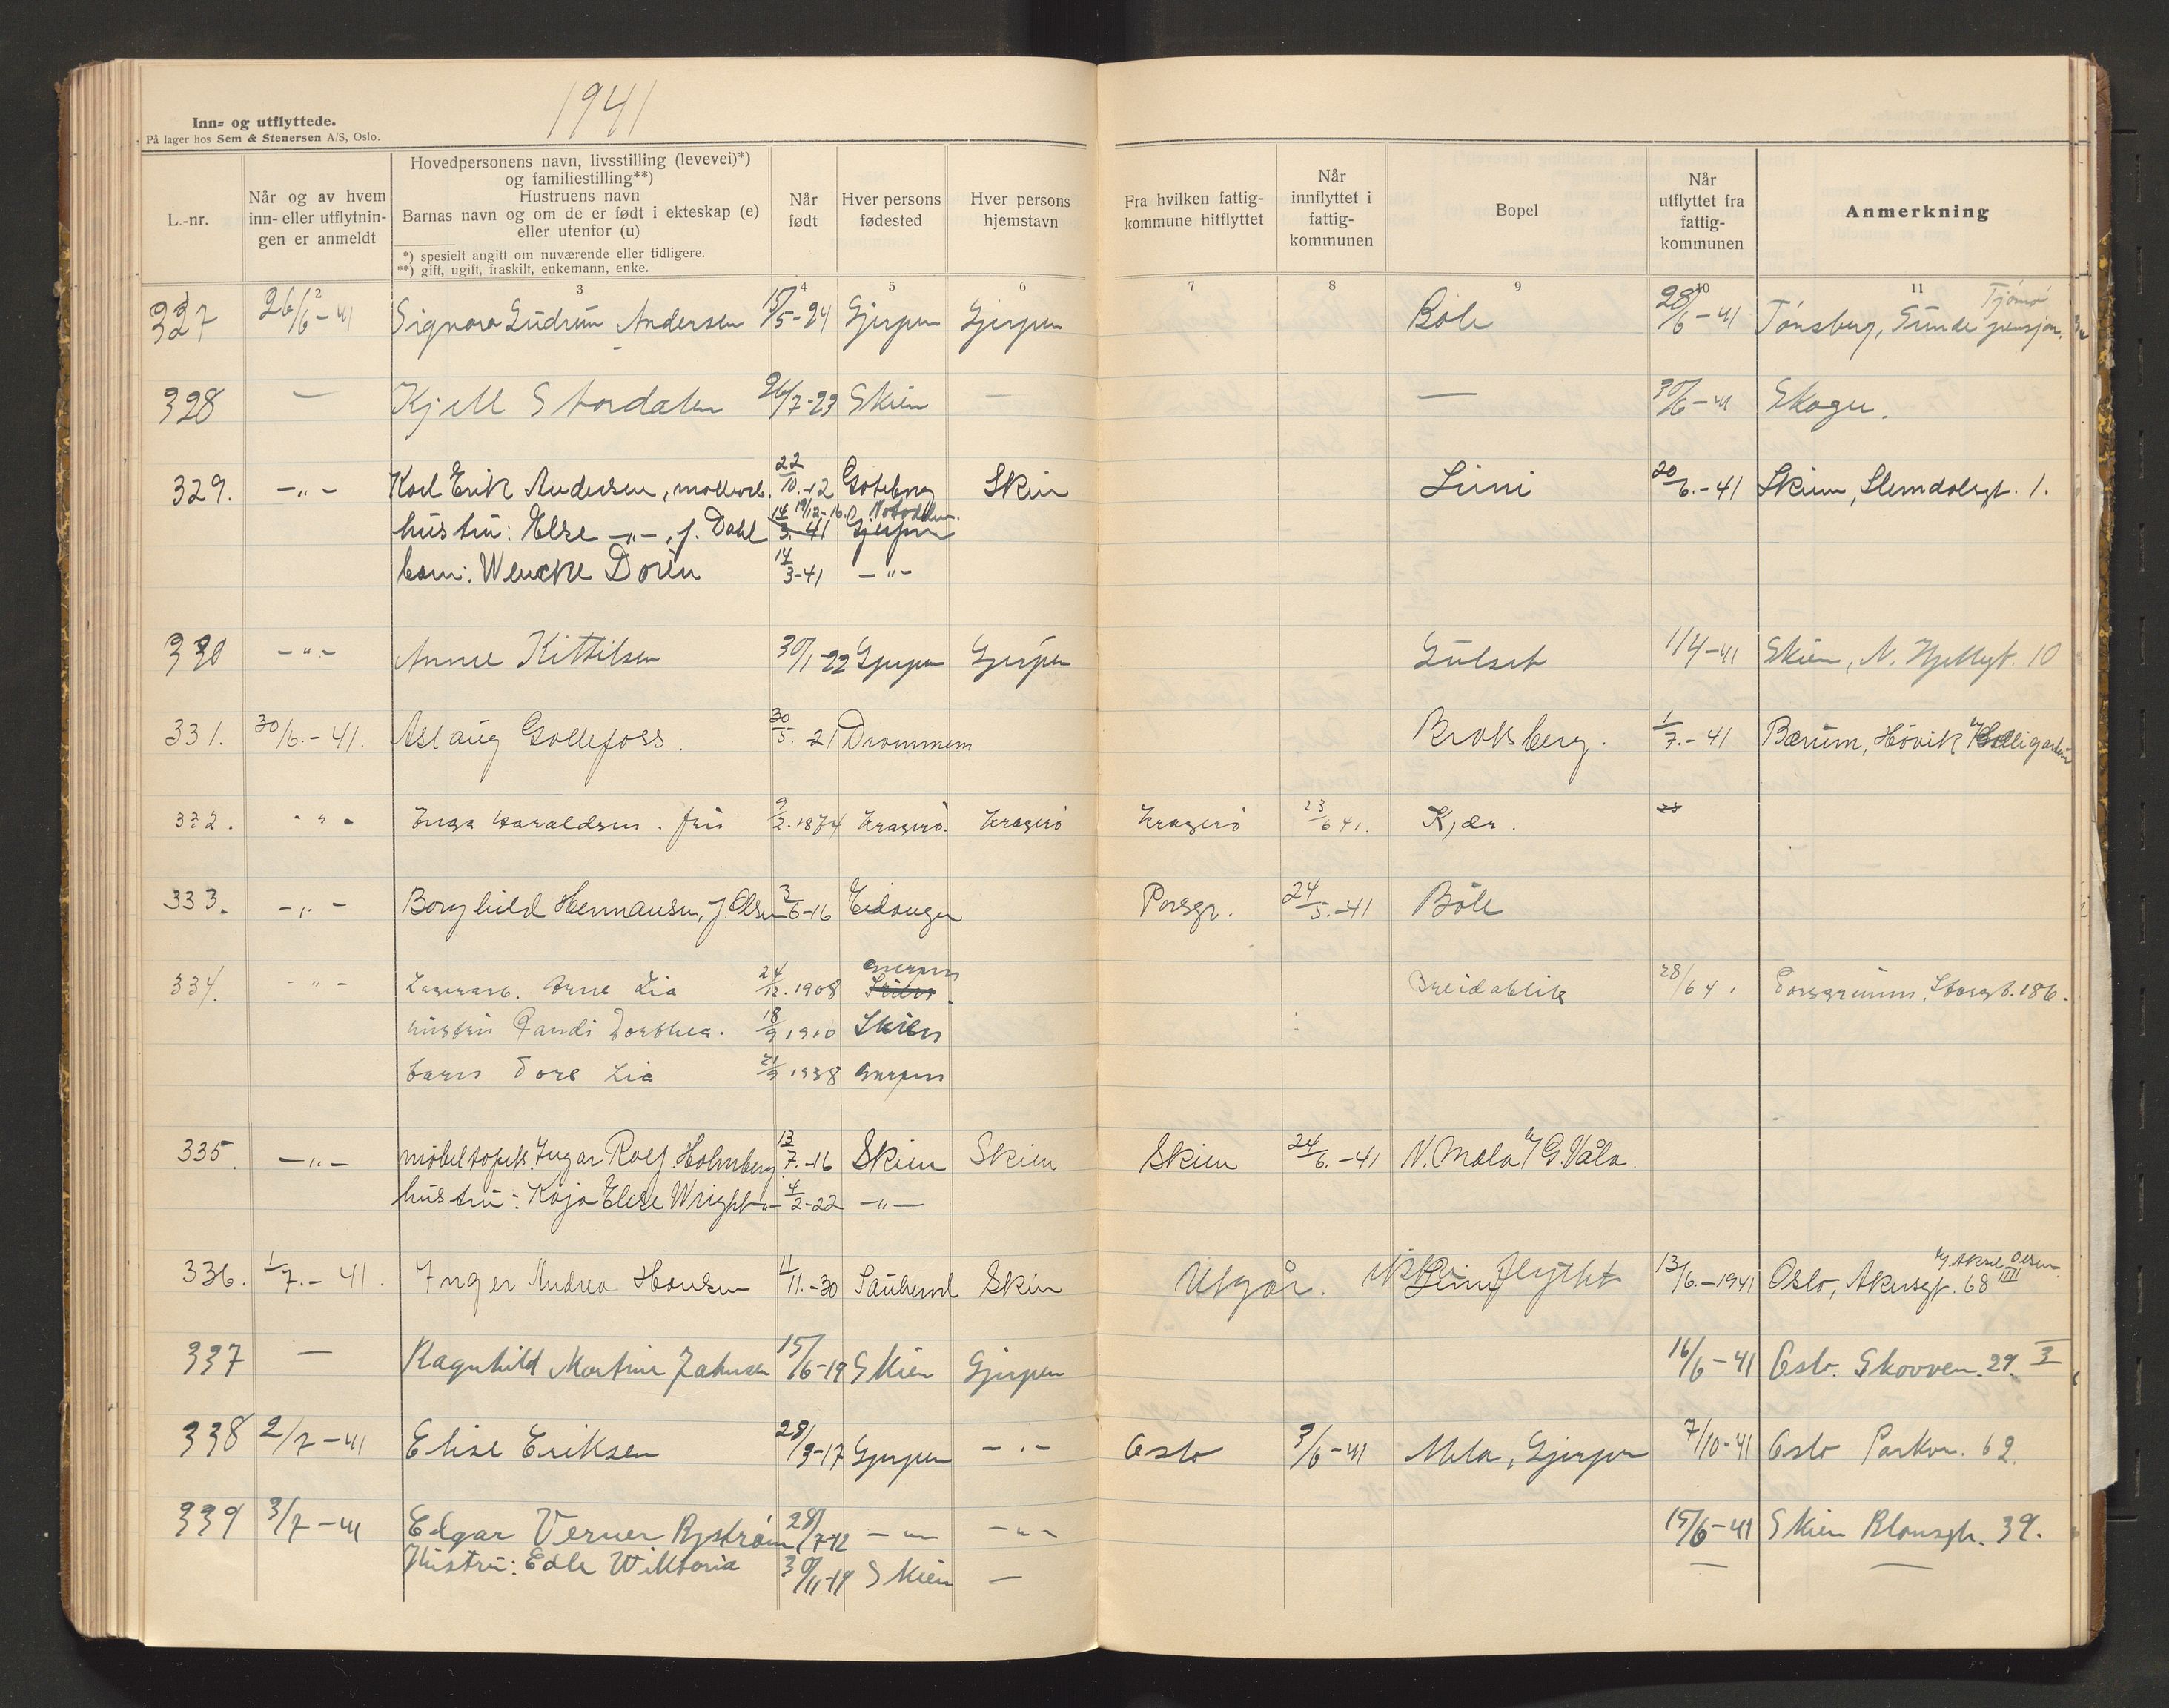 1941
Inn- og utflyttede.
På lager hos Sem & Stenersen A/S, Oslo.
L.-nr.
Når og av hvem inn- eller utflytnin-gen er anmeldt
Hovedpersonens navn, livsstilling (levevei)*)
og familiestilling**)
Hustruens navn
Barnas navn og om de er født i ekteskap (e)
eller utenfor (u)
*) spesielt angitt om nuværende eller tidligere.
**) gift, ugift, fraskilt, enkemann, enke.
Når født
Hver persons fødested
Hver persons hjemstavn
Fra hvilken fattig-kommune hitflyttet
Når innflyttet i fattig-kommunen
Bopel
Når utflyttet fra fattig-kommunen
Anmerkning
2 3 4 5 6 7 8 9 10 11
Tjømø
327 26/6-41 Signora Gudrun Andersen 15/5-24 Gjerpen Gjerpen Bøle 28/6-41 Tønsberg, Sunde pensjon.
328 — Kjell Stordalen 26/7-23 Skien — — 30/6-41 Skoger.
329. -"- Karl Erik Andersen, 22/10.-12 Gøteborg Skien Limi 20/6.-41 Skien, Slemdalsgt. 1.
19/12-16. Notodden.
hustru: Else -"-, f. Dahl 14/3.41 Gjerpen
barn: Wencke Dorèn 14/3-41 -"-
330 -"- Anne Kittilsen 30/1-22 Gjerpen Gjerpen Gulset 1/4-41 Skien, N. Hjellegt. 10
331. 30/6.-41. Aslaug Gollefoss. 30/5.21 Drammem Kroksberg. 1/7.-41 Bærum, Høvik
332. -"- Inga Haraldsen. fru 9/2.1874 Kragerø. Kragerø Kragerø 23/6 41. Kjær. 28
333. -"- Borghild Hermansen, f. Olsen 3/6-16 Eidanger Porsgr. 24/5.-41 Bøle
Gjerpen
334. -"- Lagerarb. Arne Lia 24/12.1908 Skien. Breidablik 28/6 41 Porsgrunn. Storgt. 186.
hustru Randi Dorthea. 18/9 1910 Skien
barn Tore Lia 21/9 1938 Gjerpen
335. -"- møbeltapets. Ingar Rolf Holmberg 13/7.-16 Skien Skien Skien 24/6.-41 N. Mæla v/G. Våla.
hustru: Kaja Elise Wright -"- 4/2-22 -"-
v/ Aksel Olsen
336. 1/7.-41. Inger Andrea Hansen 4/11.-30 Sauherad Skien Utgår. ikke flyttet Limi 13/6.-1941 Oslo, Akersgt. 68 III
337 — Ragnhild Martine Jahnsen 15/6-19 Skien Gjerpen 16/6-41 Oslo. Skovven. 29. I
338 2/7-41 Elise Eriksen 28/3-17 Gjerpen -"- Oslo 3/6-41 Mæla, Gjerpen 7/10-41 Oslo Parkv. 62.
339 3/7-41 Edgar Verner Bystrøm 28/7-12 -"- -"- 15/6-41 Skien Blomsgt. 39.
Hustru: Edle Wiktoria 30/11-19 Skien — — —